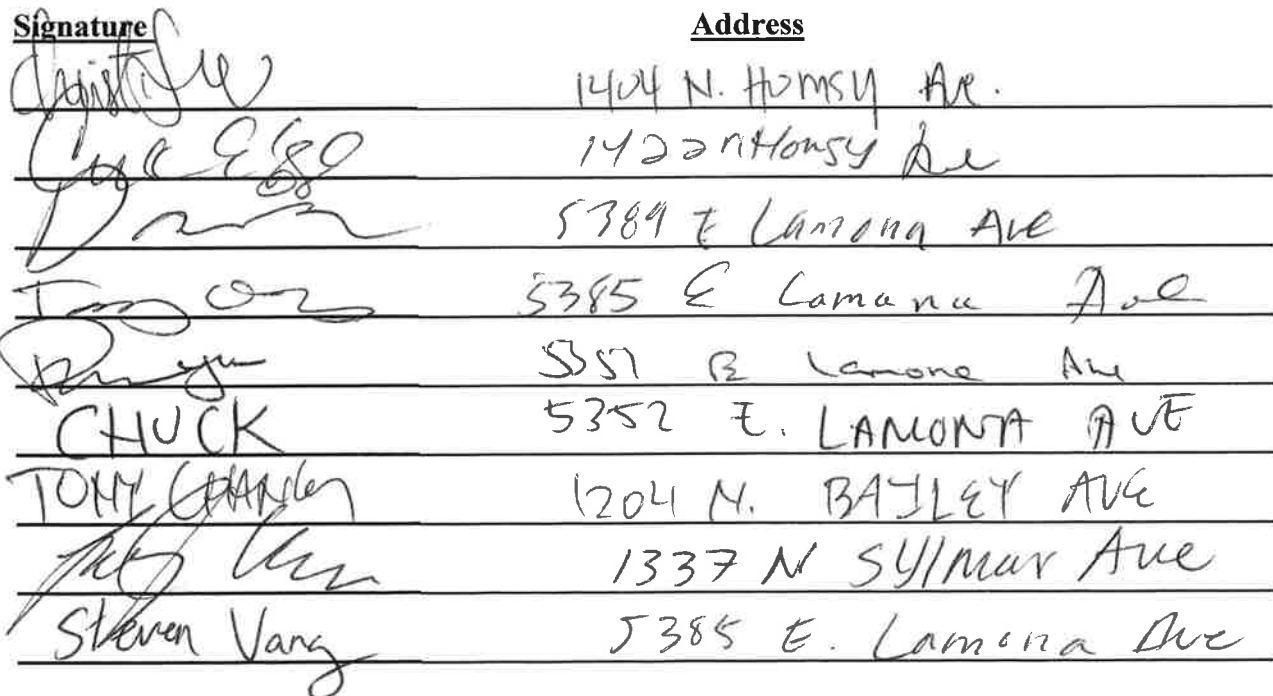 Signature Address
1404 N. Homsy Ave.
1422 n Homsy Ave
5389 E Lamona Ave
5385 E Lamona Ave
5351 E Lamona Ave
CHUCK 5352 E. LAMONA AVE
TONY 1204 N. BAYLEY AVE
1337 N Sylmar Ave
Steven Vang 5385 E. Lamona Ave